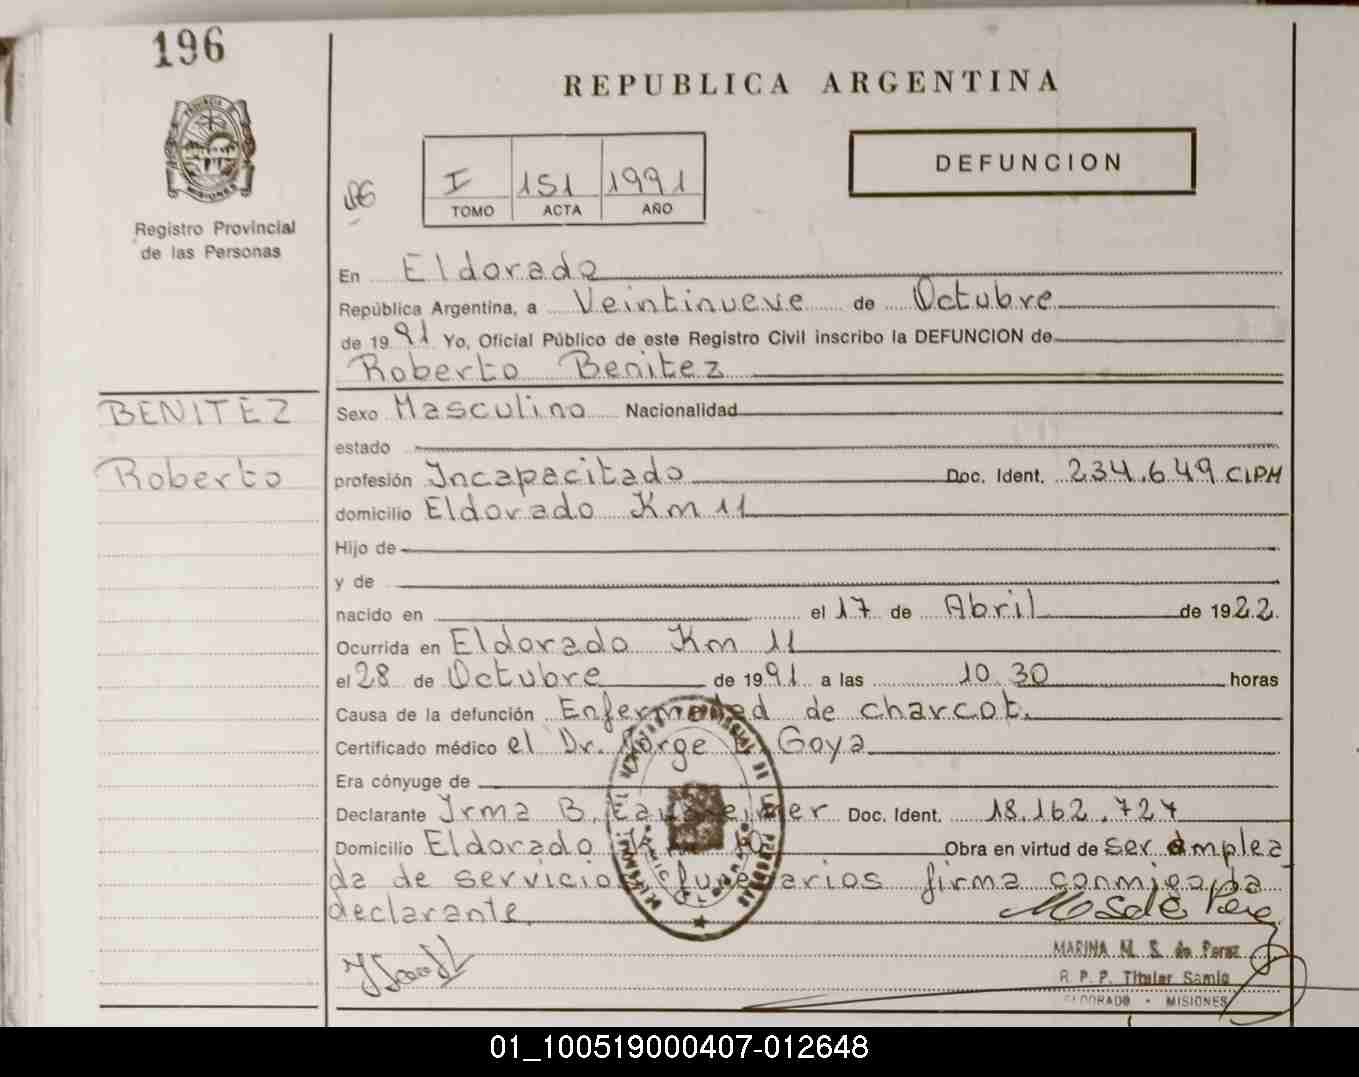 196
REPUBLICA ARGENTINA
DEFUNCION
I 151 1991
TOMO ACTA AÑO
Registro Provincial
de las Personas
En Eldorado
República Argentina, a Veintinueve de Octubre
de 1991 Yo, Oficial Público de este Registro Civil inscribo la DEFUNCION de
Roberto Benitez
BENITEZ
Roberto
Sexo Masculino Nacionalidad
estado
profesión Incapacitado Doc. Ident. 234.649 CIPM
domicilio Eldorado Km 11
Hijo de
y de
nacido en el 17 de Abril de 1922.
Ocurrida en Eldorado Km 11
el 28 de Octubre de 1991 a las 10.30 horas
Causa de la defunción Enfermedad de charcot.
Certificado médico el Dr. Jorge Goya
Era cónyuge de
Declarante Irma B. Doc. Ident. 18.162.727
Domicilio Eldorado Km Obra en virtud de ser emplea
da de servicios funerarios firma conmigo la
declarante.
MARINA M. S. de Perez
R. P. P. Titular Samic
ELDORADO - MISIONES
01_100519000407-012648